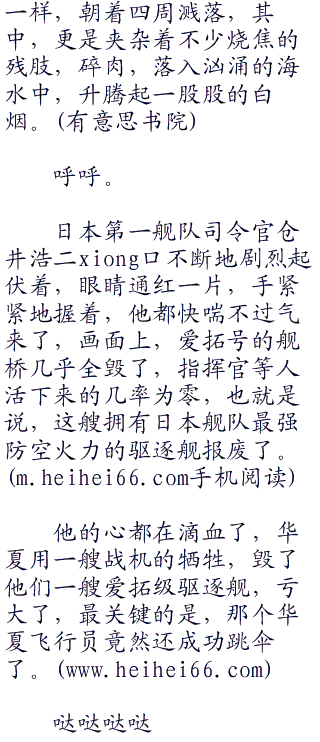 一样，朝着四周溅落，其
中，更是夹杂着不少烧焦的
残肢，碎肉，落入汹涌的海
水中，升腾起一股股的白
烟。(有意思书院)
呼呼。
日本第一舰队司令官仓
井浩二xiong口不断地剧烈起
伏着，眼睛通红一片，手紧
紧地握着，他都快喘不过气
来了，画面上，爱拓号的舰
桥几乎全毁了，指挥官等人
活下来的几率为零，也就是
说，这艘拥有日本舰队最强
防空火力的驱逐舰报废了。
(m.heihei66.com手机阅读)
他的心都在滴血了，华
夏用一艘战机的牺牲，毁了
他们一艘爱拓级驱逐舰，亏
大了，最关键的是，那个华
夏飞行员竟然还成功跳伞
了。(www.heihei66.com)
哒哒哒哒